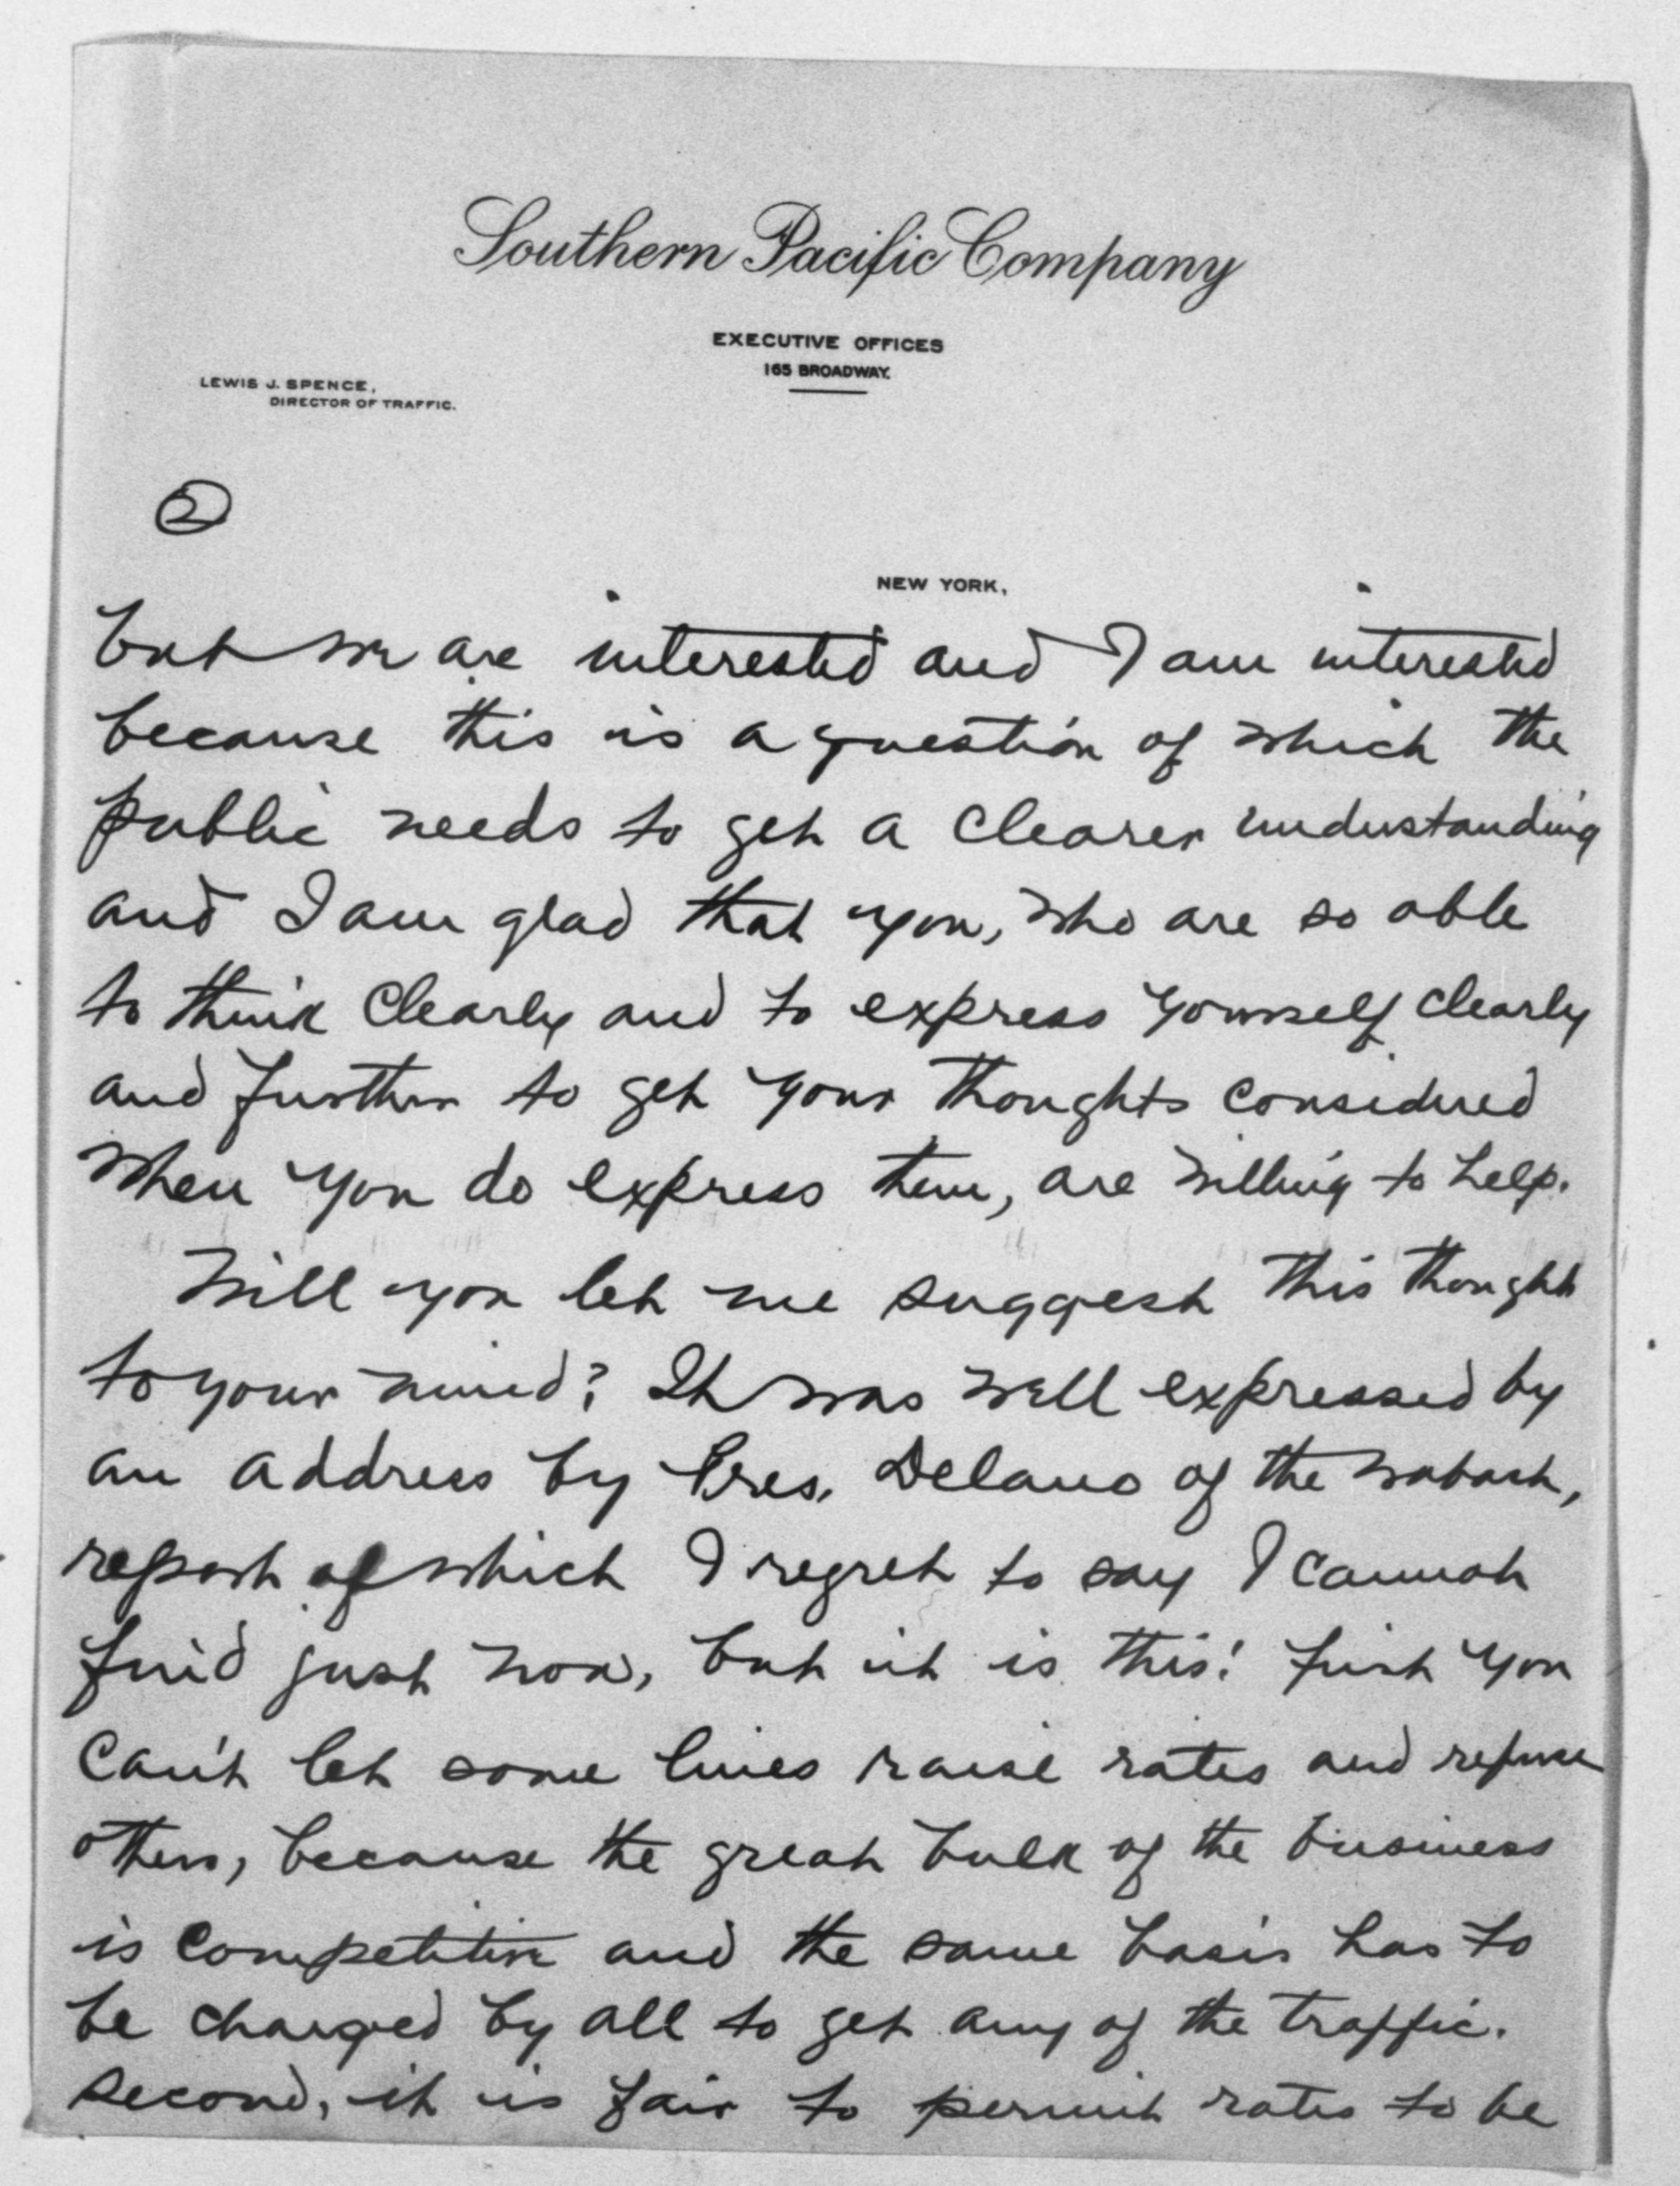 Southern Pacific Company
EXECUTIVE OFFICES
165 BROADWAY.
LEWIS J. SPENCE,
DIRECTOR OF TRAFFIC.
2
NEW YORK,
but we are interested and I am interested
because this is a question of which the
public needs to get a clearer understanding
and I am glad that you, who are so able
to think clearly and to express yourself clearly
and further to get your thoughts considered
when you do express them, are willing to help.
Will you let me suggest this thought
to your mind? It was well expressed by
an address by Pres. Delano of the Wabash,
report of which I regret to say I cannot
find just now, but it is this: first you
can't let some lines raise rates and refuse
others, because the great bulk of the business
is competitive and the same basis has to
be charged by all to get any of the traffic.
Second, it is fair to permit rates to be